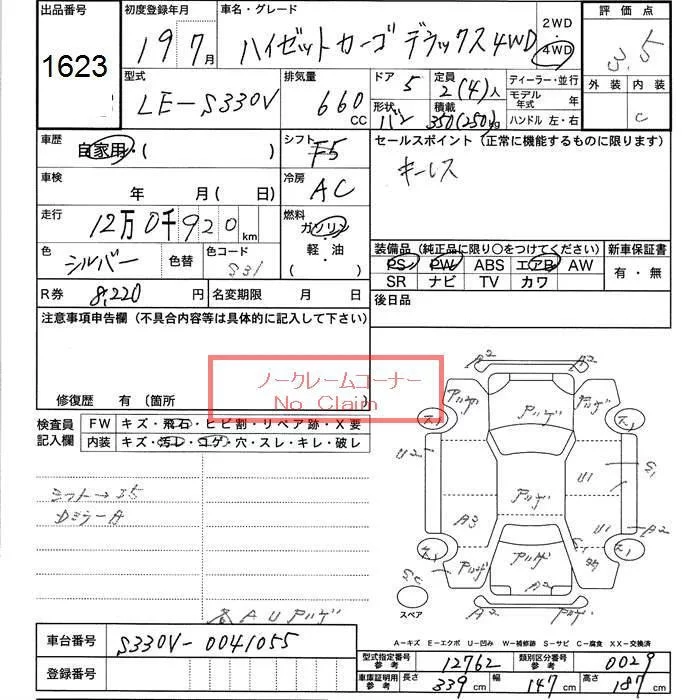 出品番号
1623
初度登録年月
19年7月
車名・グレード
ハイゼットカーゴ デラックス 4WD
2WD
4WD
評価点
3.5
外装 内装
C
型式
LE-S330V
排気量
660 CC
ドア 5
形状 バン
定員 2(4)人
積載 350(250)kg
ディーラー・並行
モデル年式 年
ハンドル 左・右
車歴
自家用・( )
シフト
F5
セールスポイント (正常に機能するものに限ります)
キーレス
車検
年 月( 日)
冷房
AC
走行
12万0千920km
燃料
ガソリン
・
軽・油
色
シルバー
色替
色コード
S31
装備品 (純正品に限り○をつけてください)
新車保証書
PS PW ABS エアB AW
SR ナビ TV カワ
有・無
R券 8,220円
名変期限 月 日
後日品
注意事項申告欄 (不具合内容等は具体的に記入して下さい)
ノークレームコーナー
No Claim
修復歴 有 (箇所
検査員記入欄
FW キズ・飛石・ヒビ割・リペア跡・X要
内装 キズ・汚レ・コゲ・穴・スレ・キレ・破レ
Dミラー
各AUアリゲ
A2 A2
アリゲ アリゲ アリゲ
U2 U1
アリゲ
A3 U1 A2
アリゲ アリゲ
A2
A2 A2
スペア
A-キズ E-エクボ U-凹み W-補修跡 S-サビ C-腐食 XX-交換済
車台番号
S330V-0041055
登録番号
型式指定番号 参考 12762
類別区分番号 参考 0029
車庫証明用 参考 長さ 339cm 幅 147cm 高さ 187cm